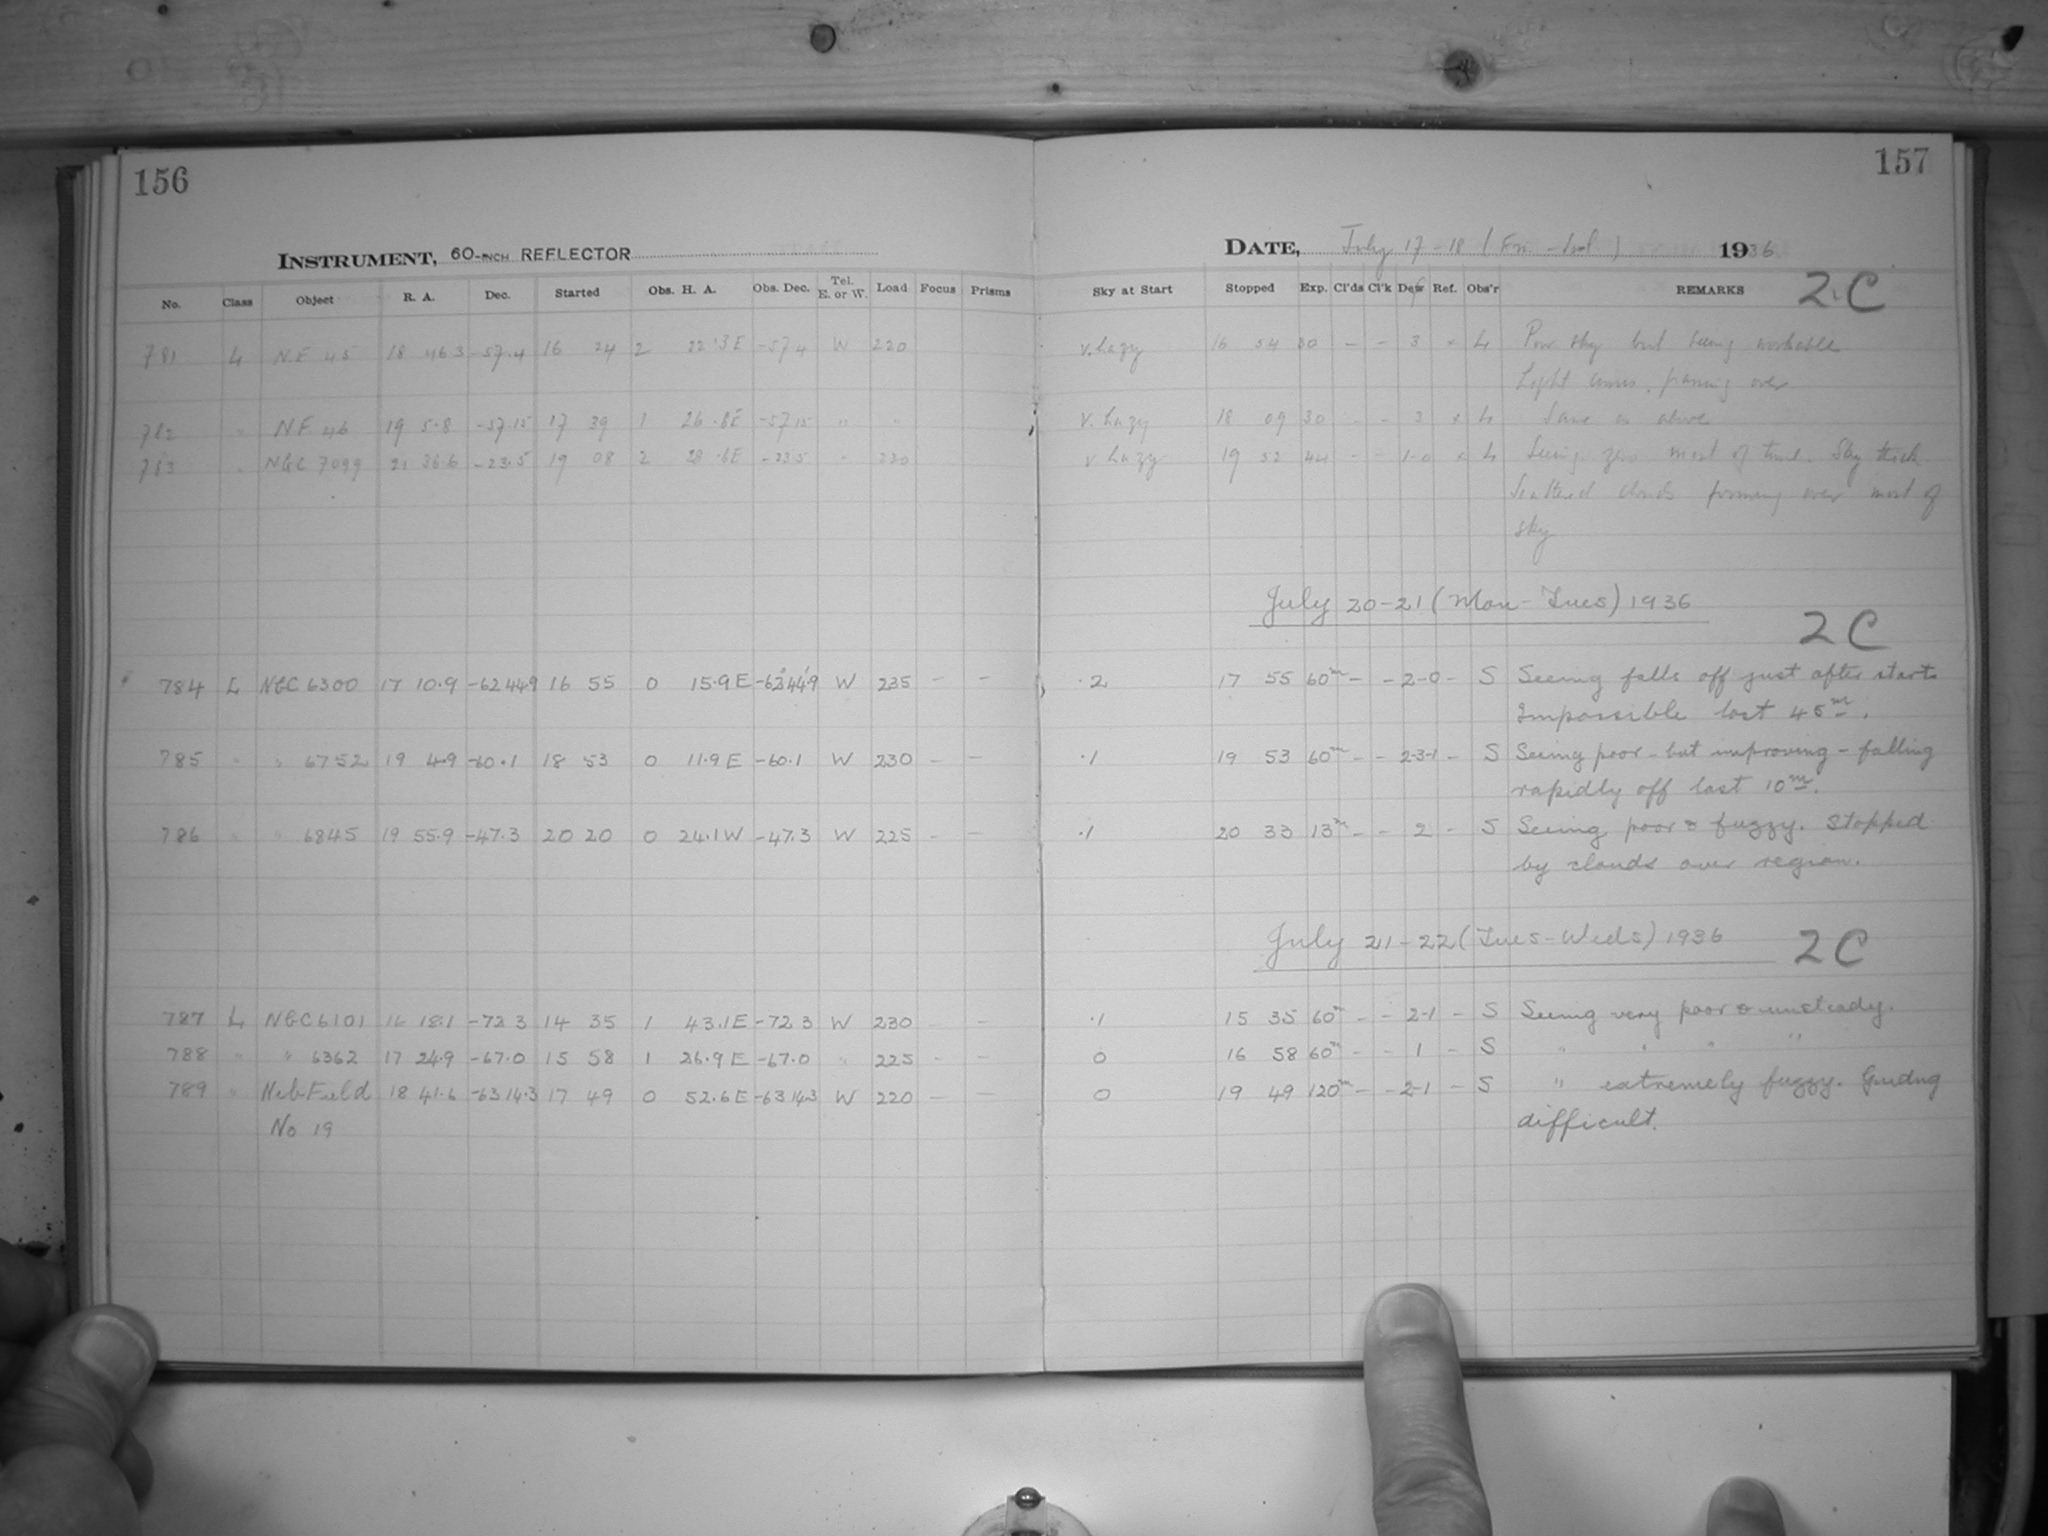 156
157
INSTRUMENT, 60-INCH REFLECTOR
DATE, July 17-18 (Fri.-Sat.) 1936
No. Class Object R. A. Dec. Started Obs. H. A. Obs. Dec. Tel. E. or W. Load Focus Prisms Sky at Start Stopped Exp. Cl'ds Cl'k Dew Ref. Obs'r REMARKS 2C
781 L N.F. 45 18 46.3 -57.4 16 24 2 22.3E -57.4 W 220 v. hazy 16 54 30 - - 3 × L Poor sky but seeing workable
Light passing over
782 " NF. 46 19 5.8 -57.15 17 39 1 26.8E -57.15 " " v. hazy 18 09 30 - - 3 × L Same as above
783 " NGC 7099 21 36.6 -23.5 19 08 2 28.6E -23.5 " 220 v hazy 19 52 44 - - 1-0 × L Seeing zero most of time. Sky thick.
Scattered clouds forming over most of
sky
July 20-21 (Mon-Tues) 1936
2C
784 L NGC 6300 17 10.9 -62 44.9 16 55 0 15.9 E -62°44'.9 W 235 - - .2 17 55 60m - - 2-0 - S Seeing falls off just after start.
Impossible last 45m.
785 " " 6752 19 4.9 -60.1 18 53 0 11.9 E -60.1 W 230 - - .1 19 53 60m - - 2-3-1 - S Seeing poor - but improving - falling
rapidly off last 10m.
786 " " 6845 19 55.9 -47.3 20 20 0 24.1 W -47.3 W 225 - - .1 20 33 13m - - 2 - S Seeing poor & fuzzy. Stopped
by clouds over region.
July 21-22 (Tues-Weds) 1936
2C
787 L NGC 6101 16 18.1 -72 3 14 35 1 43.1 E -72 3 W 230 - - .1 15 35 60m - - 2-1 - S Seeing very poor & unsteady.
788 " " 6362 17 24.9 -67.0 15 58 1 26.9 E -67.0 " 225 - - 0 16 58 60m - - 1 - S " " " "
789 " Neb. Field 18 41.6 -63 14.3 17 49 0 52.6 E -63 14.3 W 220 - - 0 19 49 120m - - 2-1 - S " extremely fuzzy. Guiding
No 19 difficult.